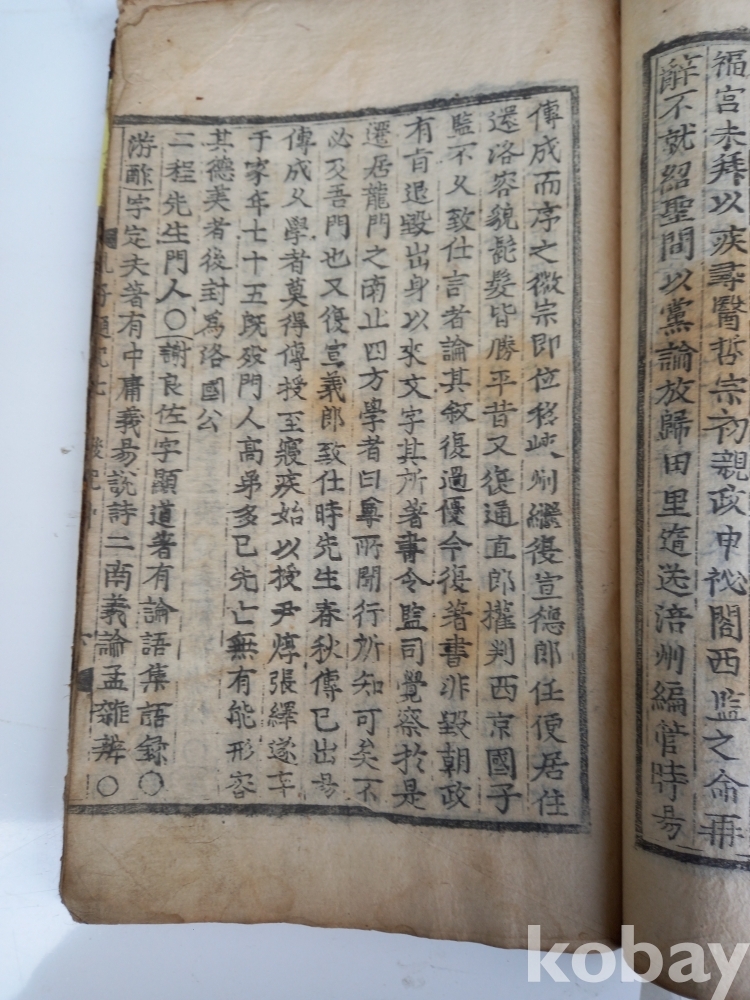 福宮未拜以疾尋醫哲宗初親政申祕閣西監之命再
辭不就紹聖間以黨論放歸田里遣送涪州編管時易
傳成而序之徽宗即位移峽州繼復宣德郎任便居住
還洛容貌髭髮皆勝平昔又復通直郎權判西京國子
監不久致仕言者論其敘復過優今復著書非毀朝政
有旨退毀出身以來文字其所著書令監司覺察於是
遷居龍門之南止四方學者曰尊所聞行所知可矣不
必及吾門也又復宣義郎致仕時先生春秋傳已出易
傳成久學者莫得傳授至寢疾始以授尹焞張繹遂卒
于家年七十五旣歿門人高弟多已先亡無有能形容
其德美者後封爲洛國公
二程先生門人〇謝良佐字顯道著有論語集語錄〇
游酢字定夫著有中庸義易說詩二南義論孟雜辨〇
kobay